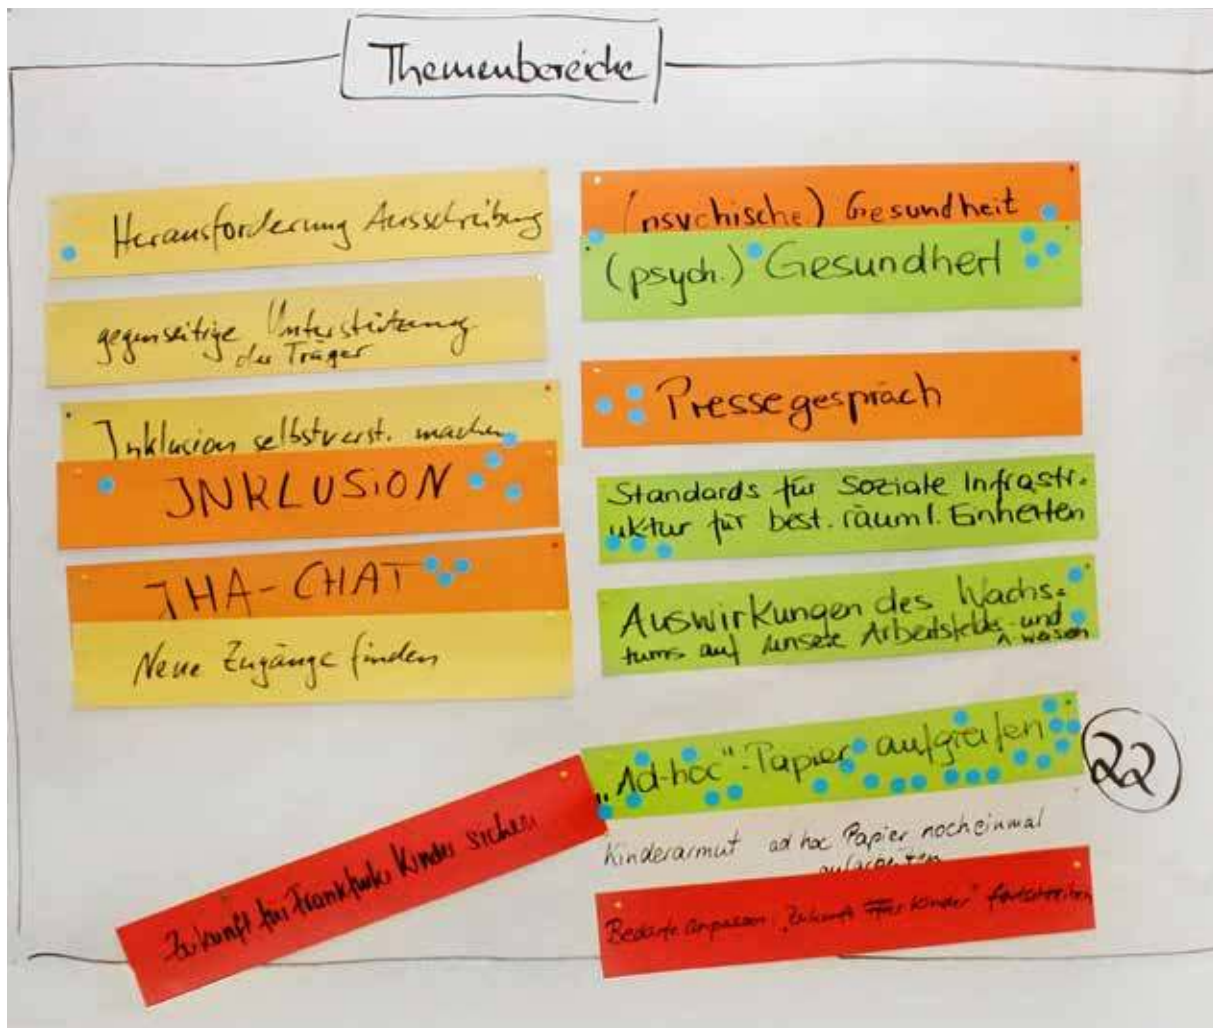 Themenbereiche
Herausforderung Ausschreibung
gegenseitige Unterstützung
der Träger
Inklusion selbstverst. machen
INKLUSION
JHA-CHAT
Neue Zugänge finden
(psychische) Gesundheit
(psych.) Gesundheit
Pressegespräch
Standards für soziale Infrastr.
uktur für best. räuml. Einheiten
Auswirkungen des Wachs-
tums auf unsere Arbeitsfelder und
weisen
"Ad-hoc"-Papier aufgreifen
22
Kinderarmut ad hoc Papier nocheinmal
aufarbeiten
Zukunft für Frankfurter Kinder sichern
Bedarfe anpassen "Zukunft Kinder" fortschreiben